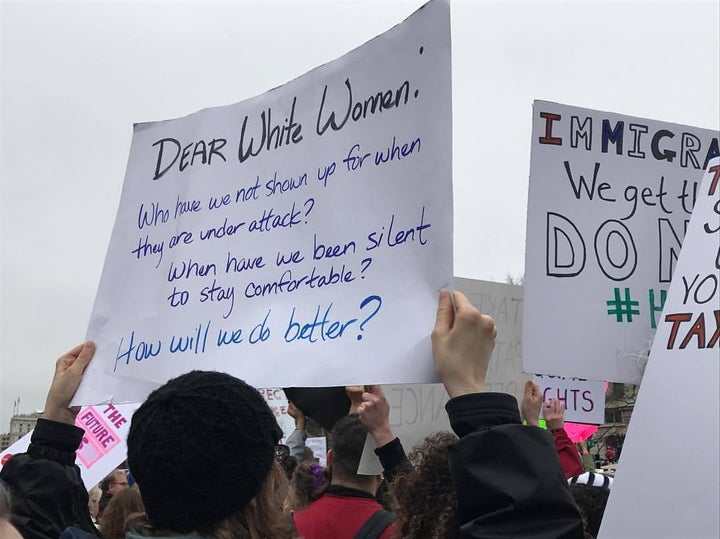 DEAR White Women.
Who have we not shown up for when
they are under attack?
When have we been silent
to stay comfortable?
How will we do better?
We get
DON
#H
YO
TAX
THE
FUTURE